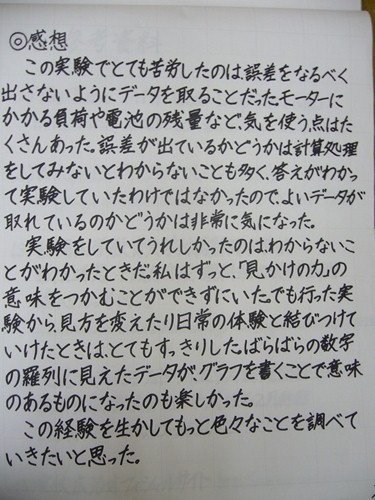 ◎感想
この実験でとても苦労したのは、誤差をなるべく
出さないようにデータを取ることだった。モーターに
かかる負荷や電池の残量など、気を使う点はた
くさんあった。誤差が出ているかどうかは計算処理
をしてみないとわからないことも多く、答えがわかっ
て実験していたわけではなかったので、よいデータが
取れているのかどうかは非常に気になった。
実験をしていてうれしかったのはわからないこ
とがわかったときだ。私はずっと、「見かけの力」の
意味をつかむことができずにいた。でも行った実
験から、見方を変えたり日常の体験と結びつけて
いけたときは、とてもすっきりした。ばらばらの数字
の羅列に見えたデータが、グラフを書くことで意味
のあるものになったのも楽しかった。
この経験を生かしてもっと色々なことを調べて
いきたいと思った。